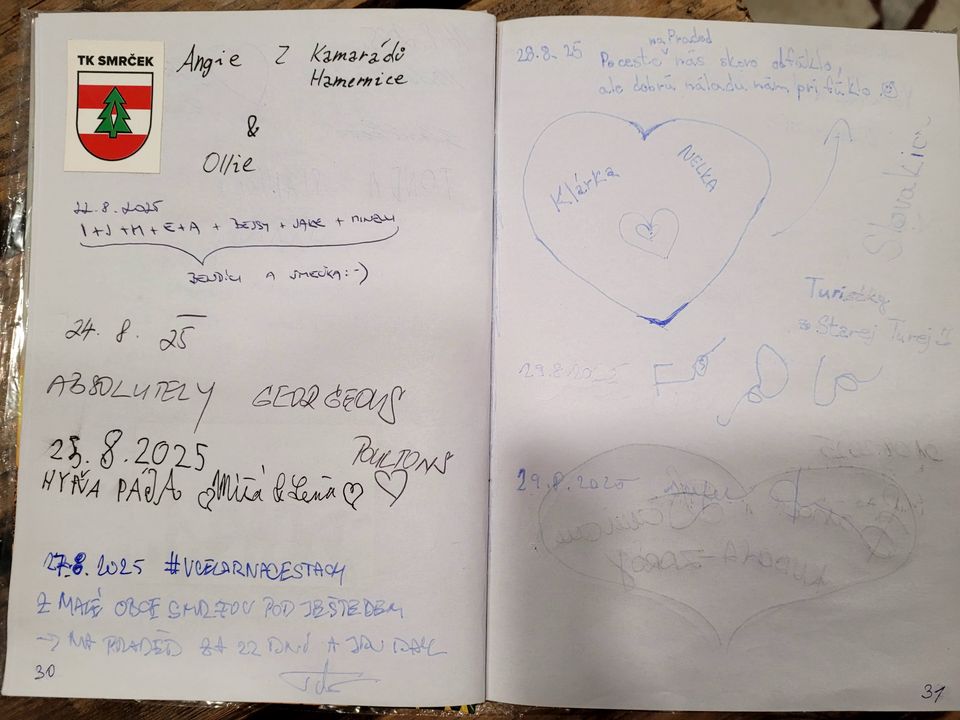 TK SMRČEK
Angie Z Kamarádů
Hamernice
&
Ollie
22.8.2025
I+J+M+E+A + BEJBY + JAKE +
A SMEČKA :-)
24. 8. 25
ABSOLUTELY GEORGEOUS
POULTONS
25.8.2025
PÁJA Míťa & Léňa
27.8.2025 #VCELARNACESTACH
Z MALÉ OBCE SMRŽOV POD JEŠTĚDEM
→ NA PRADĚD ZA 22 DNÍ A JDU DÁL
30
28.8.25 na Praděd
Po cestě nás skoro odfúklo,
ale dobrú náladu nám prifúklo
Klárka NELKA
Slovakia
Turistky
zo Starej Turej
29.8.2025
29.8.2025
31